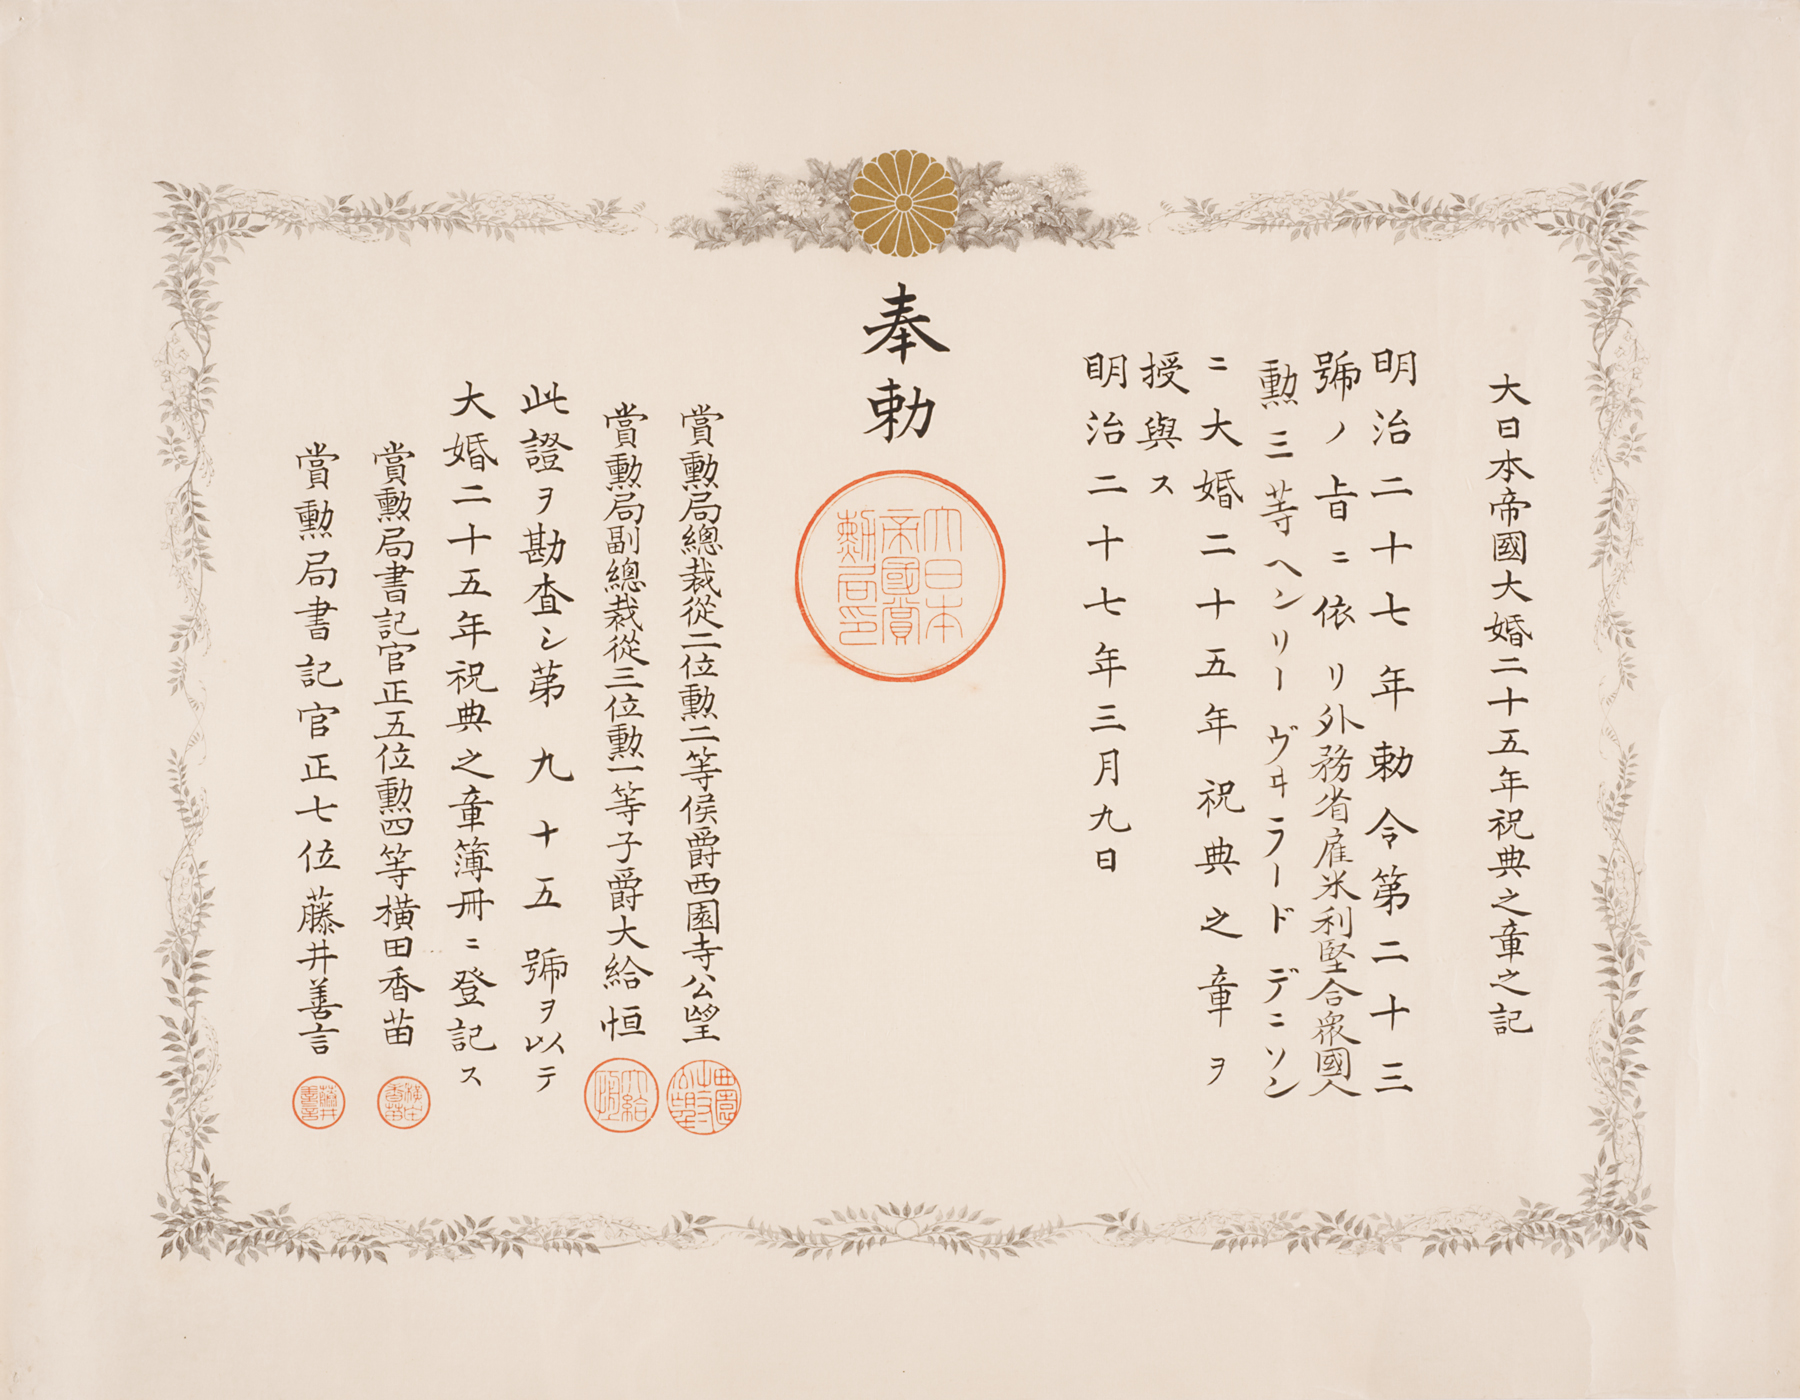 大日本帝國大婚二十五年祝典之章之記
明治二十七年勅令第二十三
號ノ旨ニ依リ外務省雇米利堅合衆國人
勲三等ヘンリーヴヰラードデニソン
ニ大婚二十五年祝典之章ヲ
授與ス
明治二十七年三月九日
奉勅
大日本
帝國賞
勲局印
賞勲局總裁從二位勲二等侯爵西園寺公望
賞勲局副總裁從三位勲一等子爵大給恒
此證ヲ勘査シ第九十五號ヲ以テ
大婚二十五年祝典之章簿冊ニ登記ス
賞勲局書記官正五位勲四等横田香苗
賞勲局書記官正七位藤井善言